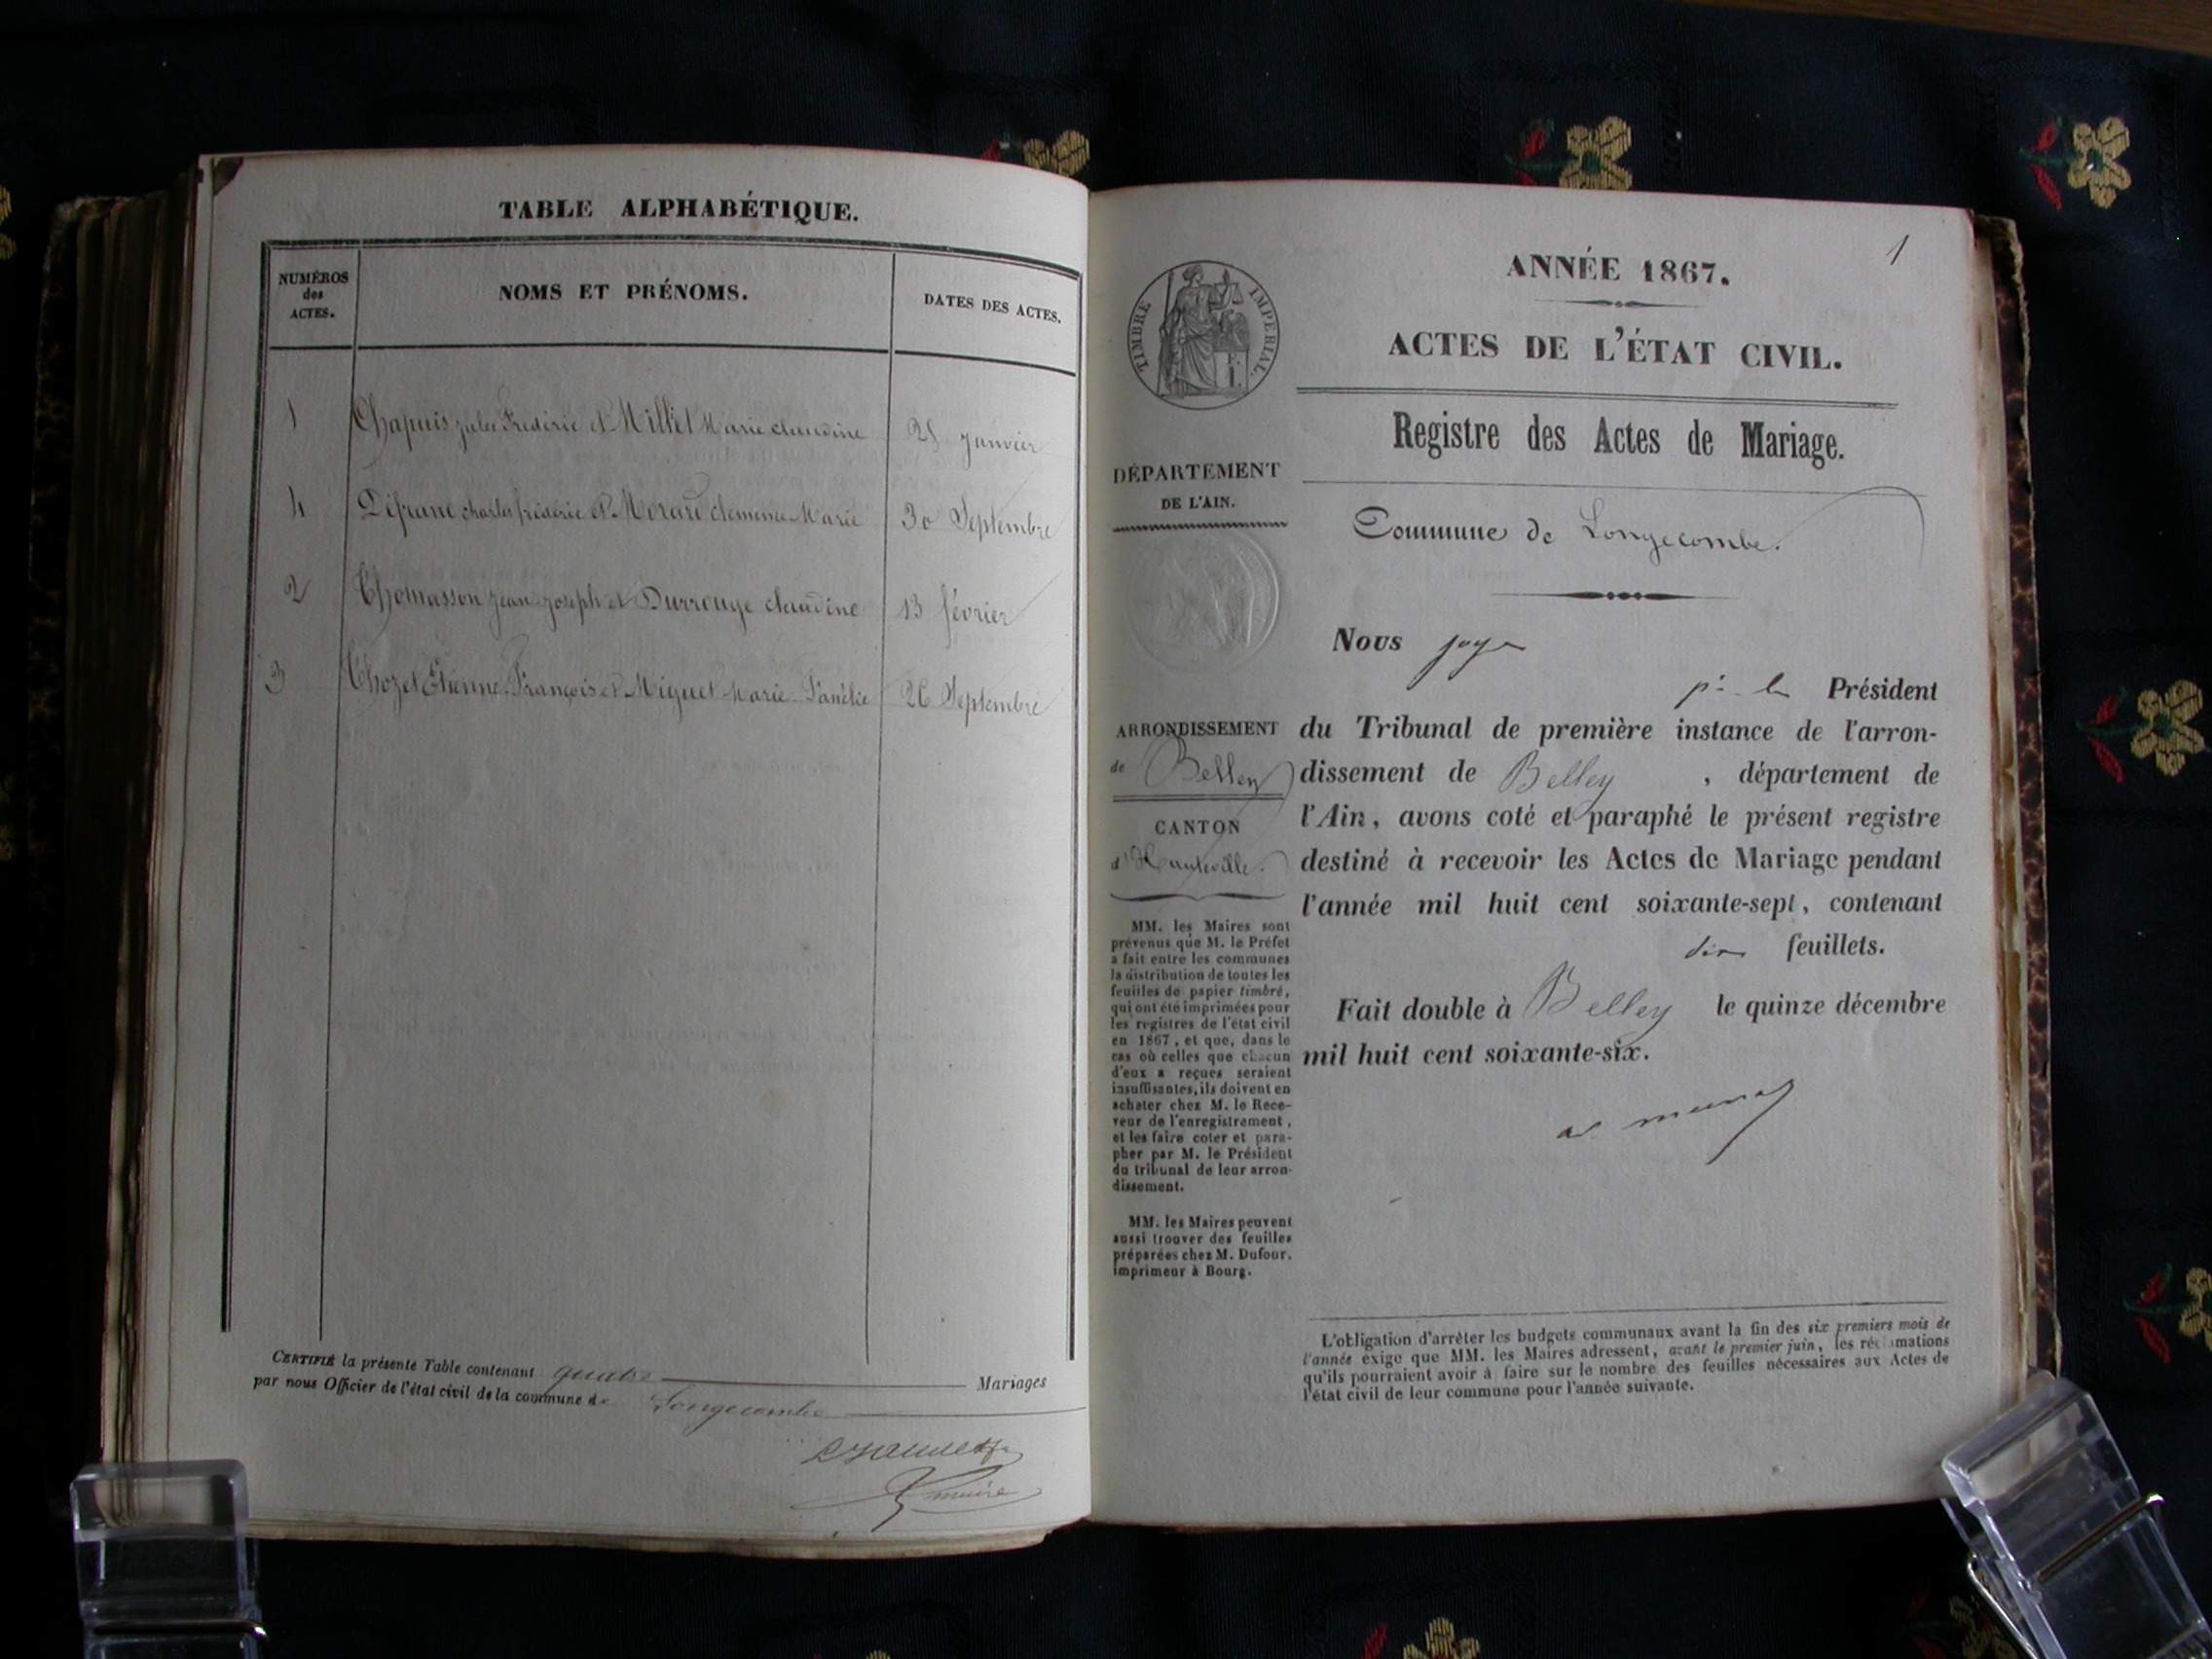 TABLE ALPHABÉTIQUE.
NUMÉROS
des
ACTES.
NOMS ET PRÉNOMS.
DATES DES ACTES.
1 Chapuis jules Frédéric et Millet Marie claudine 25 janvier
4 Défranc charles frédéric et Morard clemence Marie 30 Septembre
2 Thomasson jean joseph et Durrouge claudine 13 février
3 Thozet Etienne François et Miguet Marie 26 Septembre
CERTIFIÉ la présente Table contenant quatre Mariages
par nous Officier de l'état civil de la commune de Longecombe
maire
1
TIMBRE IMPERIAL.
ANNÉE 1867.
ACTES DE L'ÉTAT CIVIL.
Registre des Actes de Mariage.
DÉPARTEMENT
DE L'AIN.
ARRONDISSEMENT
de Belley
CANTON
d'Hauteville.
MM. les Maires sont
prévenus que M. le Préfet
a fait entre les communes
la distribution de toutes les
feuilles de papier timbré,
qui ont été imprimées pour
les registres de l'état civil
en 1867, et que, dans le
cas où celles que chacun
d'eux a reçues seraient
insuffisantes, ils doivent en
acheter chez M. le Rece-
veur de l'enregistrement,
et les faire coter et para-
pher par M. le Président
du tribunal de leur arron-
dissement.
MM. les Maires peuvent
aussi trouver des feuilles
préparées chez M. Dufour,
imprimeur à Bourg.
Commune de Longecombe.
Nous
Président
du Tribunal de première instance de l'arron-
dissement de Belley, département de
l'Ain, avons coté et paraphé le présent registre
destiné à recevoir les Actes de Mariage pendant
l'année mil huit cent soixante-sept, contenant
dix feuillets.
Fait double à Belley le quinze décembre
mil huit cent soixante-six.
L'obligation d'arrêter les budgets communaux avant la fin des six premiers mois de
l'année exige que MM. les Maires adressent, avant le premier juin, les réclamations
qu'ils pourraient avoir à faire sur le nombre des feuilles nécessaires aux Actes de
l'état civil de leur commune pour l'année suivante.